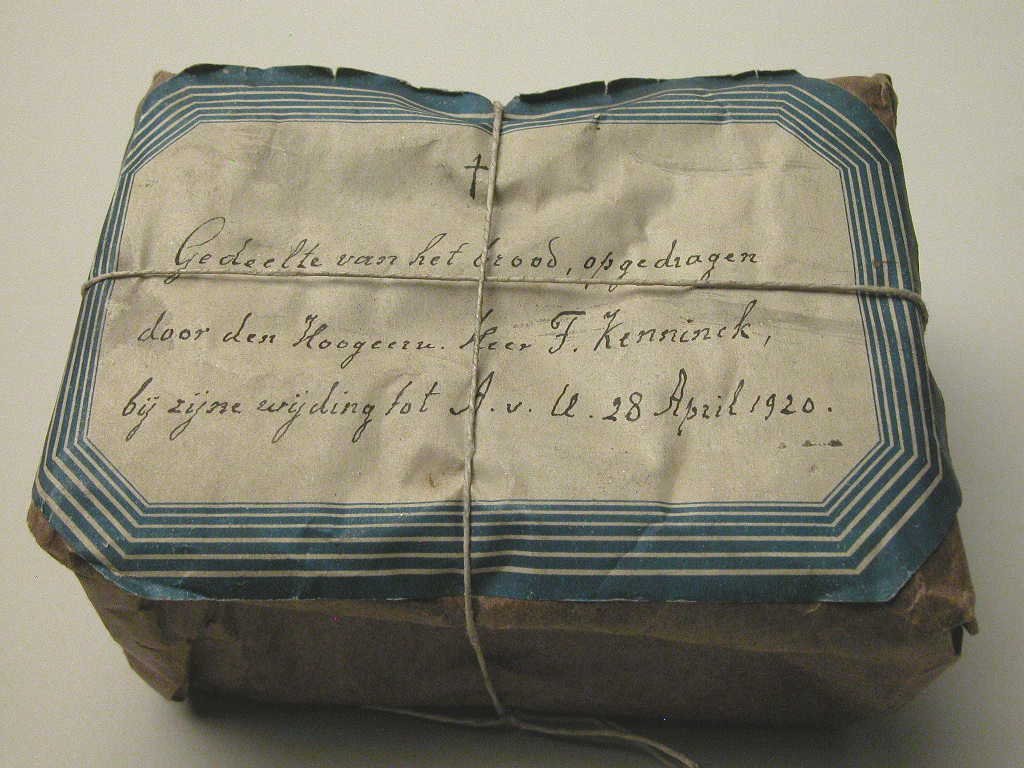 †
Gedeelte van het brood, opgedragen
door den Hoogeerw. Heer F. Kenninck,
bij zijne wijding tot A. v. U. 28 April 1920.